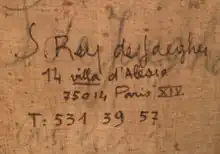 S Rey de jaegher
14 villa d'Alésia
75014 Paris XIV.
T: 531 39 57